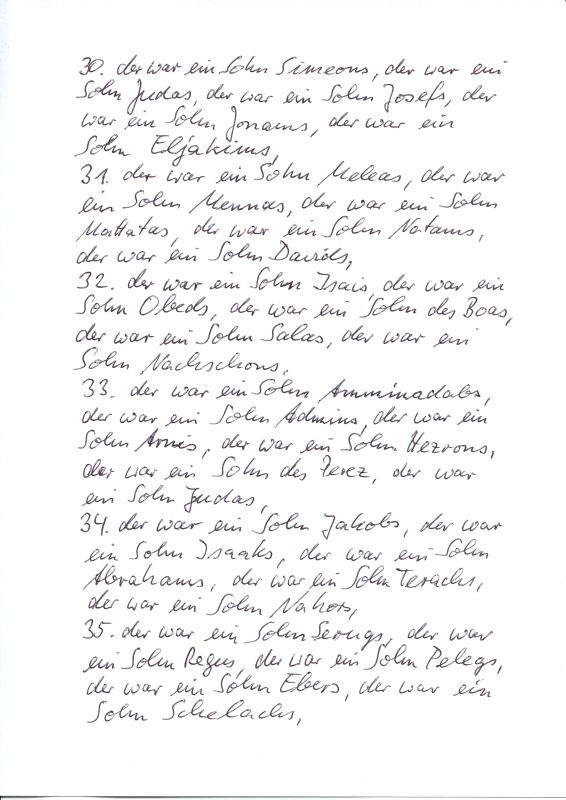 30. der war ein Sohn Simeons, der war ein
Sohn Judas, der war ein Sohn Josefs, der
war ein Sohn Jonams, der war ein
Sohn Eljakims,
31. der war ein Sohn Meleas, der war
ein Sohn Mennas, der war ein Sohn
Mattatas, der war ein Sohn Natams,
der war ein Sohn Davids,
32. der war ein Sohn Isais, der war ein
Sohn Obeds, der war ein Sohn des Boas,
der war ein Sohn Salas, der war ein
Sohn Nachschons,
33. der war ein Sohn Amminadabs,
der war ein Sohn Admins, der war ein
Sohn Arnis, der war ein Sohn Hezrons,
der war ein Sohn des Perez, der war
ein Sohn Judas,
34. der war ein Sohn Jakobs, der war
ein Sohn Isaaks, der war ein Sohn
Abrahams, der war ein Sohn Terachs,
der war ein Sohn Nahors,
35. der war ein Sohn Serugs, der war
ein Sohn Regus, der war ein Sohn Pelegs,
der war ein Sohn Ebers, der war ein
Sohn Schelachs,